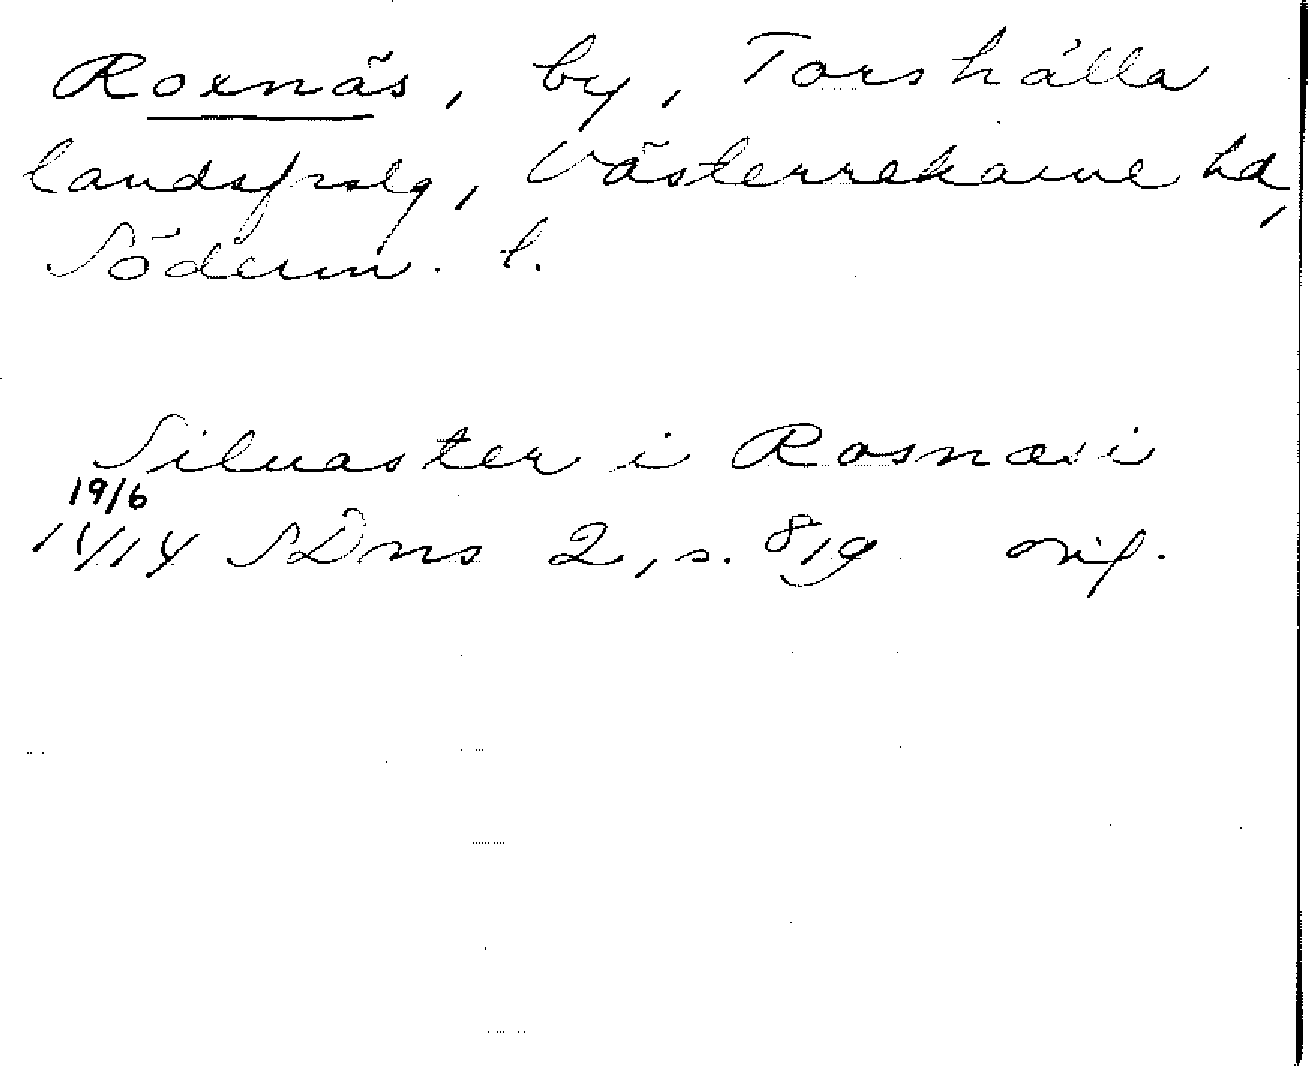 Roxnäs, by, Torshälla
landsfrslg, Västerrekarne hd,
Söderm. l.
Siluaster i Rosnæsi
19/6
14 SDns 2, s. 819 orig.